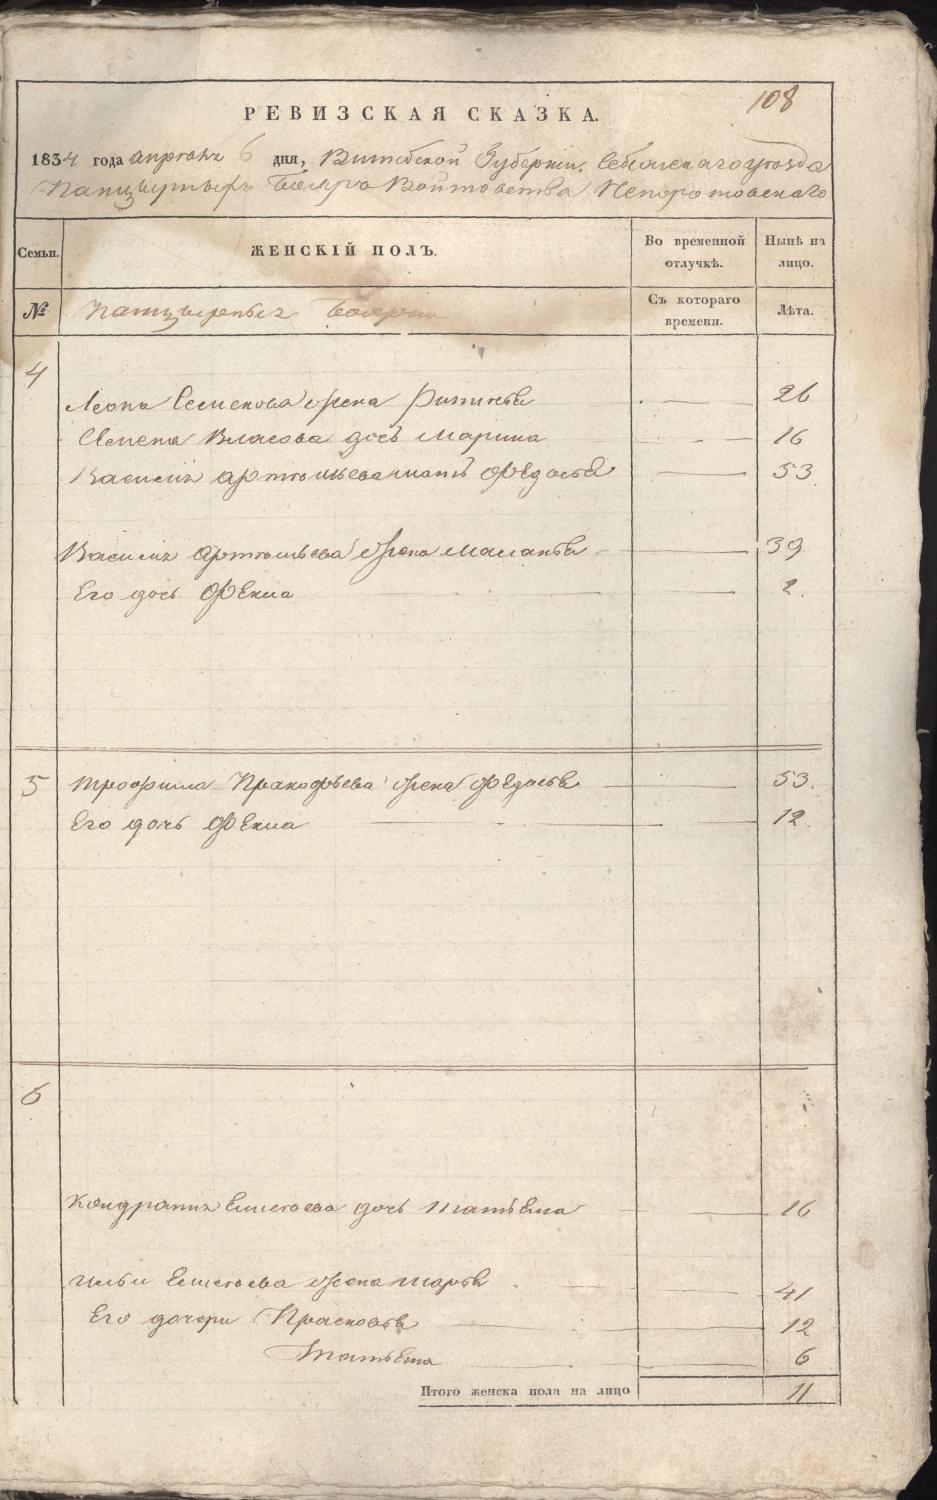 108
РЕВИЗСКАЯ СКАЗКА.
1834 года апреля 6 дня, Витебской Губернiи. Себежскаго уезда
Панцырныхъ Бояръ Войтовства Непоротовскаго
Семьи. ЖЕНСКІЙ ПОЛЪ. Во временной отлучкѣ. Нынѣ на лицо.
№ Панцырныя Боярки Съ котораго времени. Лѣта.
4
Леона Семенова жена 26
Семена Власова дочь Марина 16
Василия Артемьева мать Федосья 53.
Василия Артемьева жена Маланья 39
Его дочь Фекла 2.
5 Трофима Пракофьева жена Федосья 53.
Его дочь Фекла 12
6
Кондратия Елисеева дочь Татьяна 16
Ильи Елисеева жена Марья 41
Его дочери Прасковья 12
Татьяна 6
Итого женска пола на лицо 11